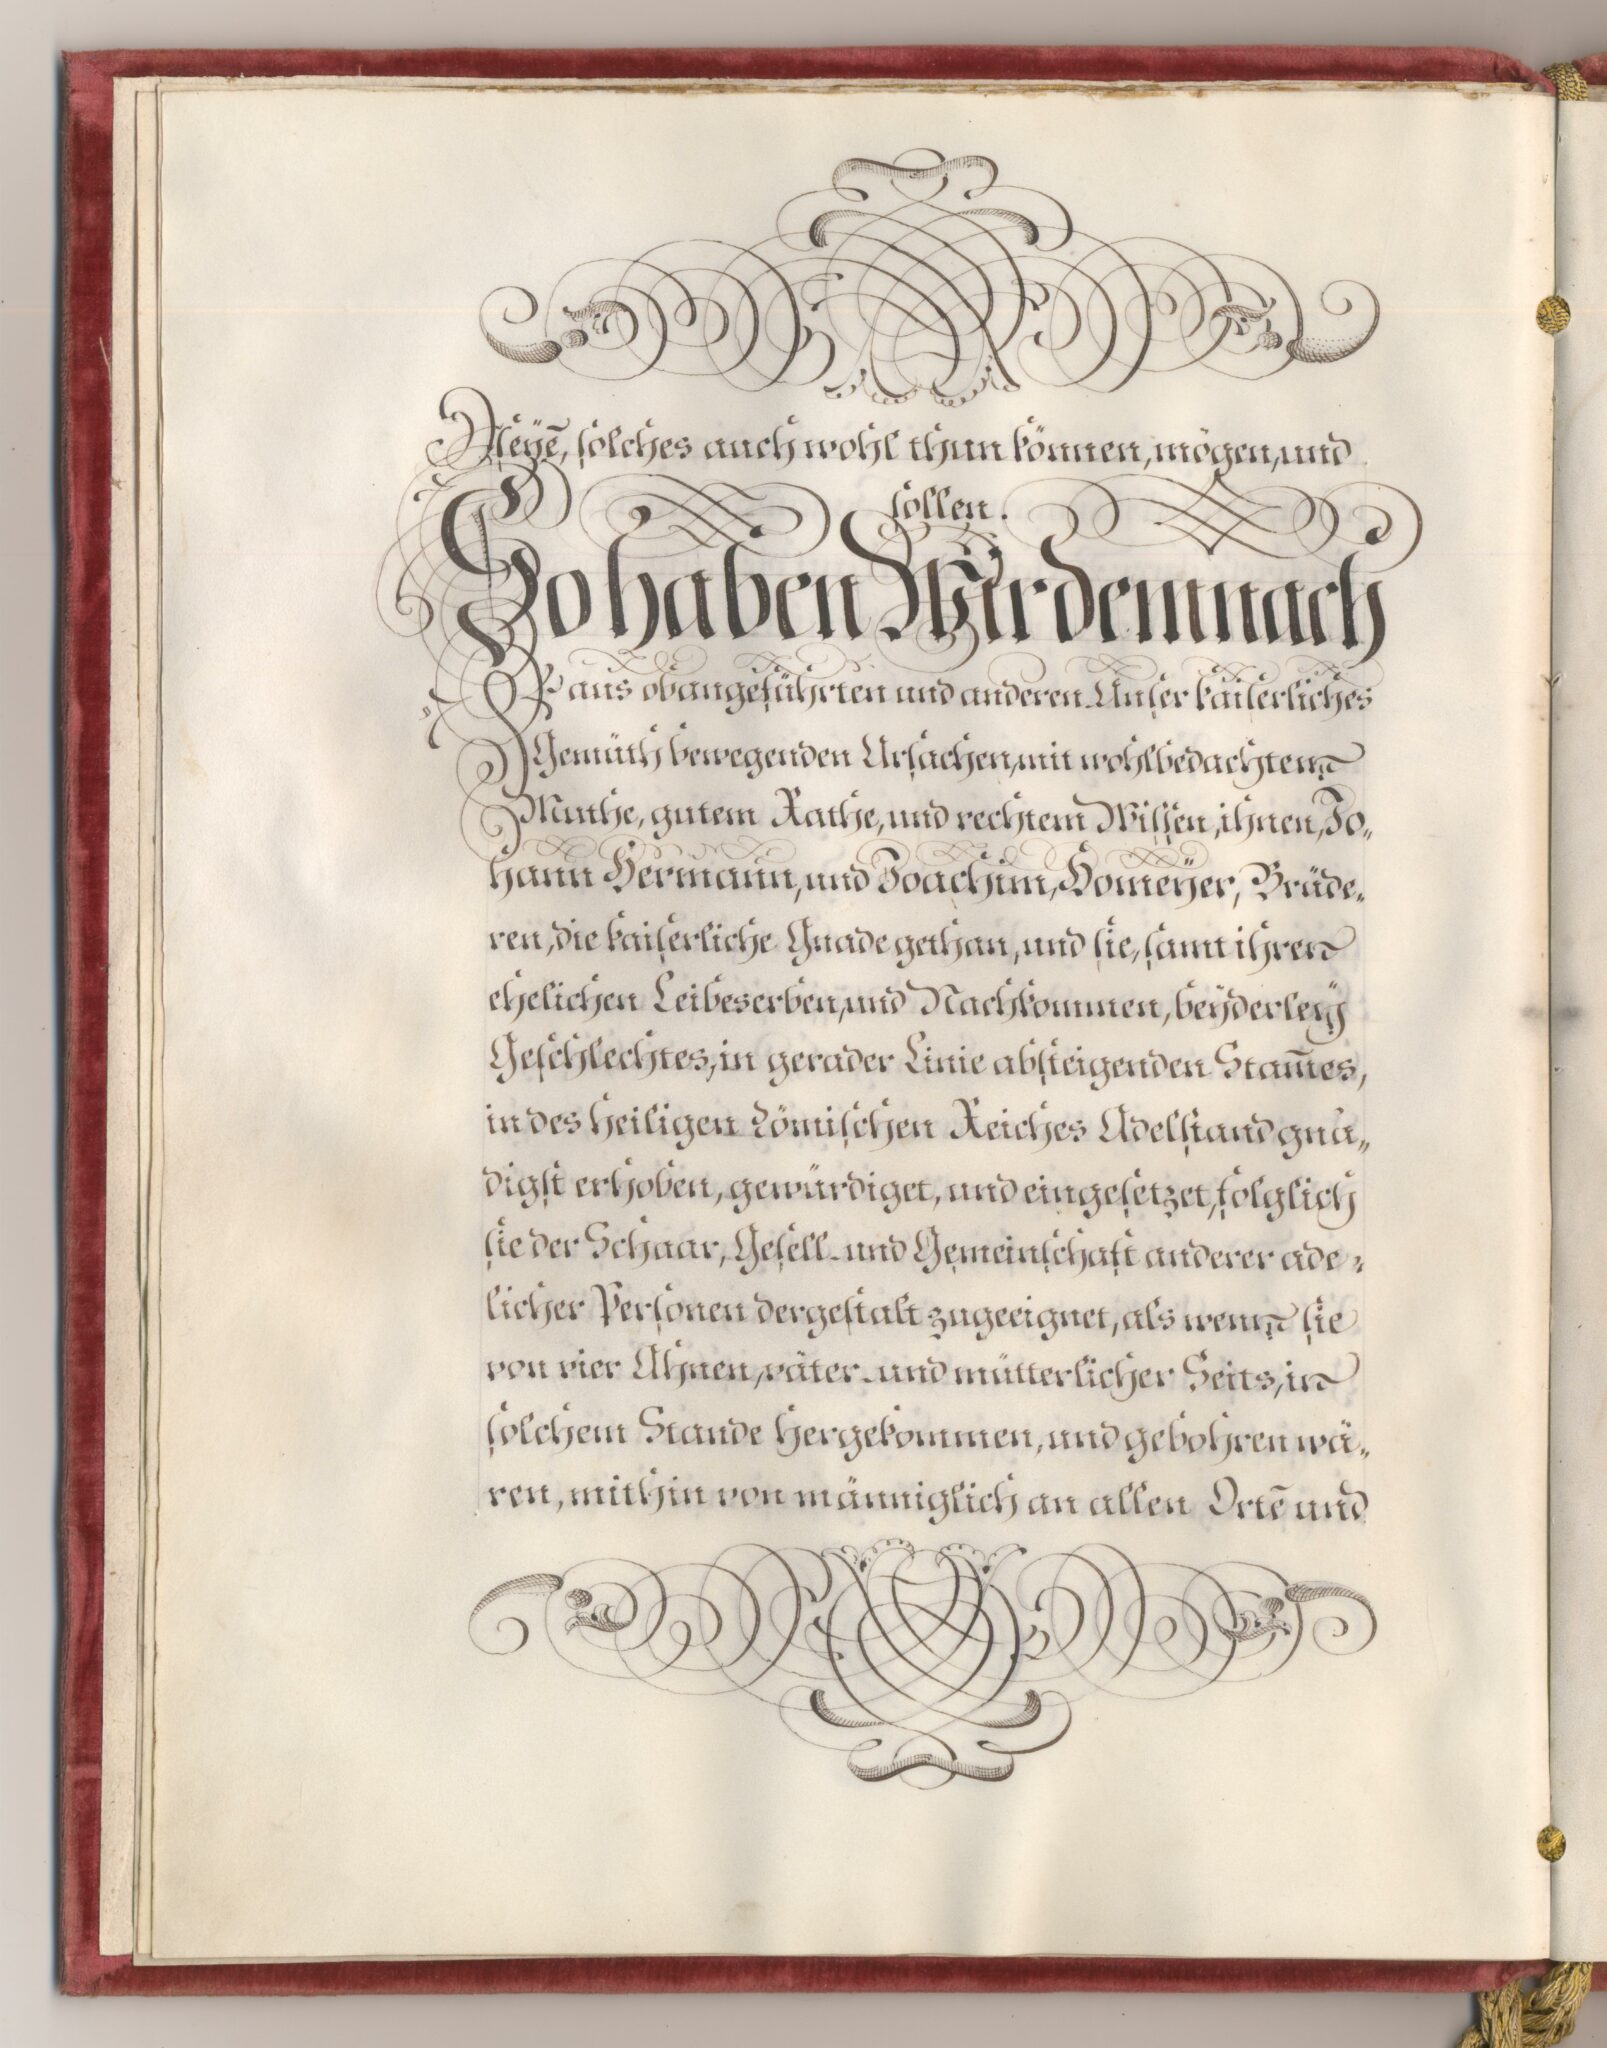 Meÿē, solches auch wohl thun können, mögen, und
sollen.
So haben Wir demnach
aus obangeführten und anderen Unser kaiserliches
Gemüth bewegenden Ursachen, mit wohlbedachtem
Muthe, gutem Rathe, und rechtem Wissen, ihnen, Jo„
hann Hermann, und Joachim, Homeÿer, Brüde„
ren, die kaiserliche Gnade gethan, und sie, samt ihren
ehelichen Leibeserben, und Nachkommen, beÿderleÿ
Geschlechtes, in gerader Linie absteigenden Stam̄es,
in des heiligen Römischen Reiches Adelstand gnä„
digst erhoben, gewürdiget, und eingesetzet, folglich
sie der Schaar, Gesell- und Gemeinschaft anderer ade„
licher Personen dergestalt zugeeignet, als wenn sie
von vier Ahnen, väter- und mütterlicher Seits, in
solchem Stande hergekommen, und gebohren wä„
ren, mithin von männiglich an allen Ortē und